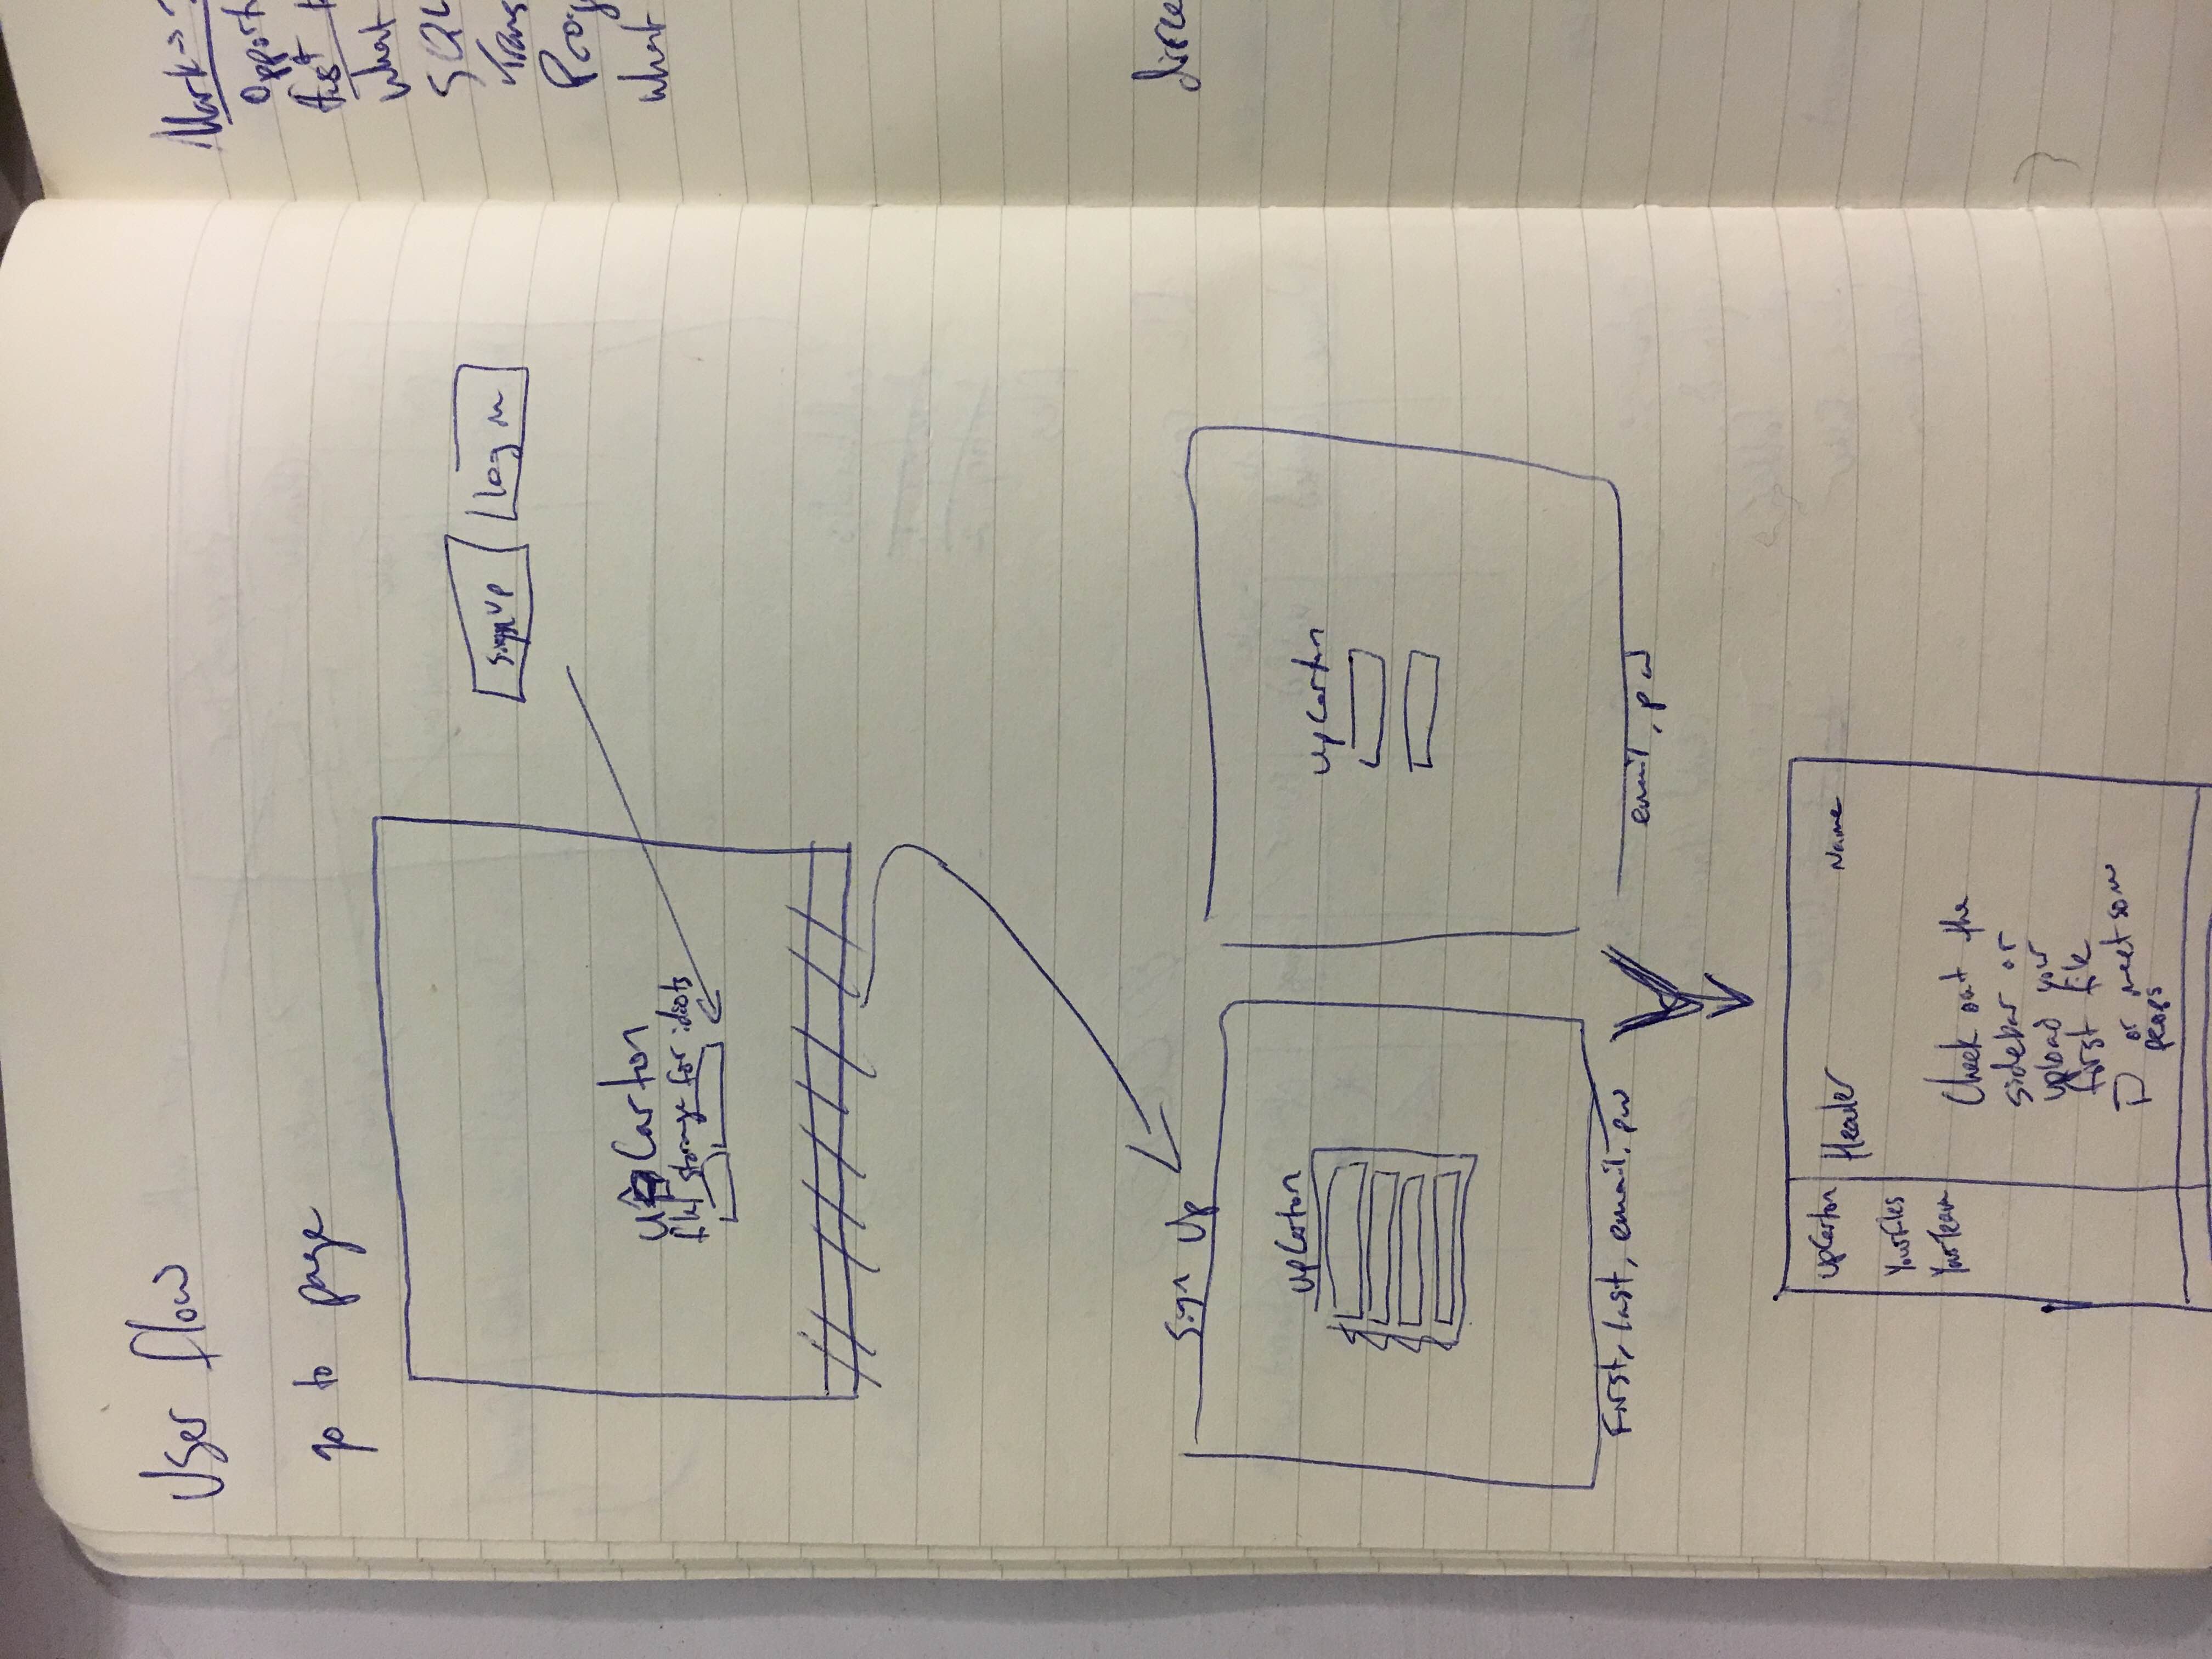 User flow
go to page
Sign up
Log in
upCarton
file storage for idiots
Sign Up
upCarton
upCarton
First, last, email, pw
email, pw
upCarton
Header
Name
Your Files
Your Team
Check out the
sidebar or
upload your
first file
or meet some
peops
Mark
what
SQL
what